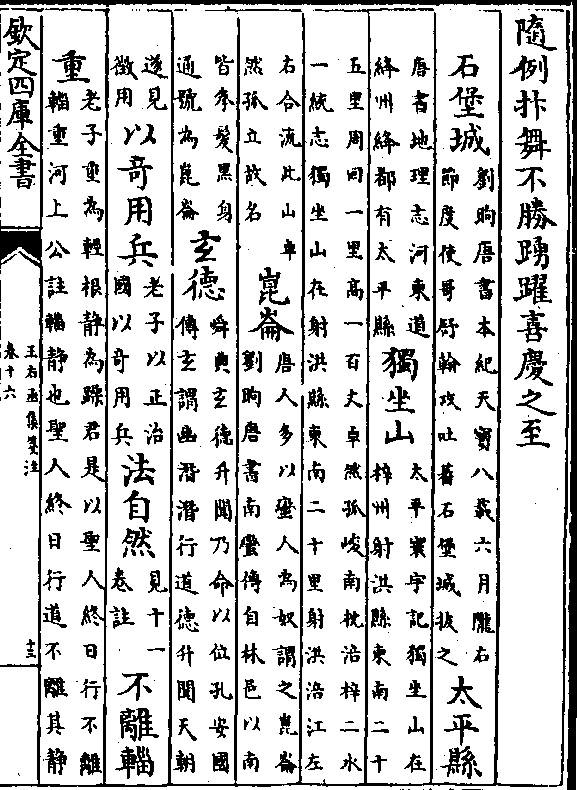 隨例抃舞不勝踴躍喜慶之至
石堡城劉昫唐書本紀天寶八載六月隴右節度使哥舒翰攻吐蕃石堡城拔之太平縣
唐書地理志河東道絳州絳郡有太平縣獨坐山太平寰宇記獨坐山在梓州射洪縣東南二十
五里周回一里高一百丈卓然孤峻南枕涪梓二水一統志獨坐山在射洪縣東南二十里射洪涪江左
右合流此山卓然孤立故名崑崙唐人多以蠻人為奴謂之崑崙劉昫唐書南蠻傳自林邑以南
皆卷髮黑身通號為崑崙玄德舜典玄德升聞乃命以位孔安國傳玄謂幽潛潛行道德升聞天朝
遂見徵用以奇用兵老子以正治國以奇用兵法自然見十一卷註不離輜
重老子重為輕根静為躁君是以聖人終日行不離輜重河上公註輜静也聖人終日行道不離其静
欽定四庫全書
王右丞集箋注
卷十六
十三